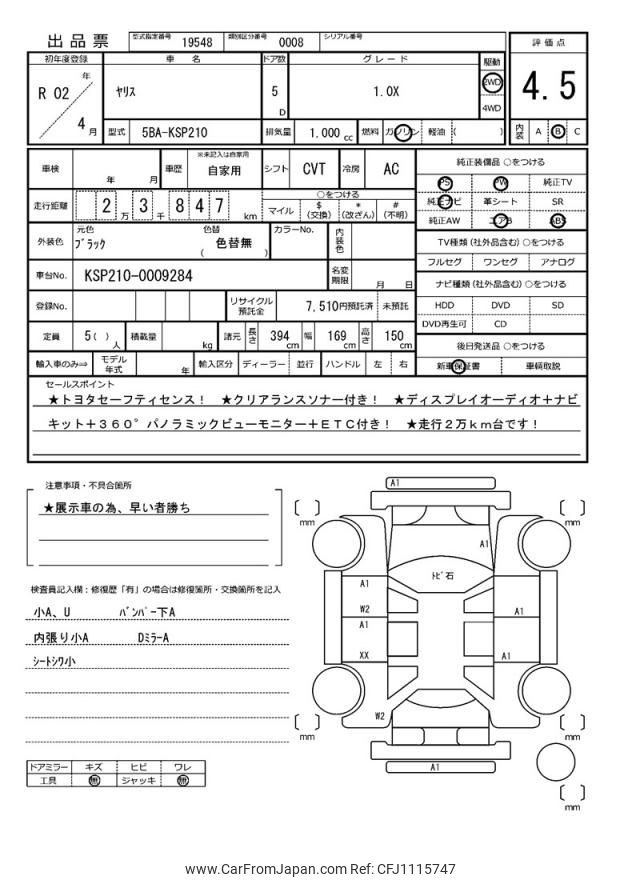 出品票 型式指定番号 19548 類別区分番号 0008 シリアル番号
評価点
4.5
内装 A B C
初年度登録 車名 ドア数 グレード 駆動
R 02 年 4 月
ヤリス 5 D 1.0X 2WD 4WD
型式 5BA-KSP210 排気量 1.000 cc 燃料 ガソリン 軽油 ( )
車検 年 月 車歴 ※未記入は自家用 自家用 シフト CVT 冷房 AC
走行距離 2 万 3 千 8 4 7 km
○をつける
マイル $ (交換) * (改ざん) # (不明)
外装色 元色 ブラック 色替 色替無 ( ) カラーNo. 内装色
車台No. KSP210-0009284 名変期限 月 日
登録No. リサイクル預託金 7,510円預託済 未預託
定員 5( ) 人 積載量 kg 諸元 長さ 394 cm 幅 169 cm 高さ 150 cm
輸入車のみ⇒ モデル年式 年 輸入区分 ディーラー 並行 ハンドル 左 右
純正装備品 ○をつける
PS PW 純正TV
純正ナビ 革シート SR
純正AW エアB ABS
TV種類(社外品含む)○をつける
フルセグ ワンセグ アナログ
ナビ種類(社外品含む)○をつける
HDD DVD SD
DVD再生可 CD
後日発送品 ○をつける
新車保証書 車輌取説
セールスポイント
★トヨタセーフティセンス! ★クリアランスソナー付き! ★ディスプレイオーディオ+ナビ
キット+360°パノラミックビューモニター+ETC付き! ★走行2万km台です!
注意事項・不具合箇所
★展示車の為、早い者勝ち
検査員記入欄:修復歴「有」の場合は修復箇所・交換箇所を記入
小A、U バンパー下A
内張り小A DミラーA
シートシワ小
ドアミラー キズ ヒビ ワレ
工具 無 ジャッキ 無
A1
[ ] mm [ ] mm
A1
トビ石
A1
W2 A1
A1
XX A1
W2
[ ] mm [ ] mm
A1
[ ] mm
www.CarFromJapan.com Ref: CFJ1115747